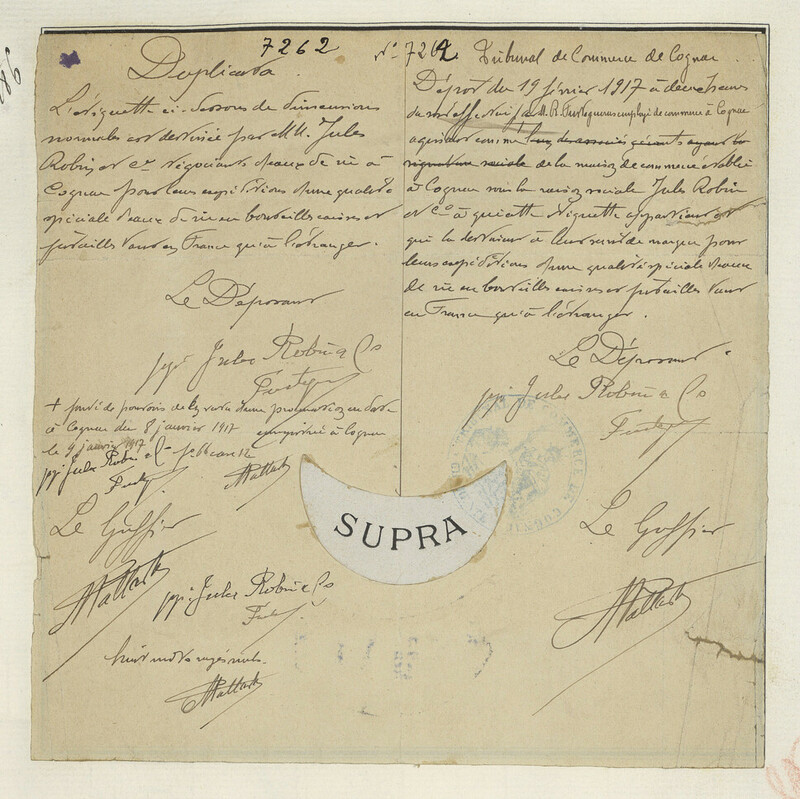 7262
Duplicata
L'étiquette ci-dessous de dimensions
normales est destinée par MM. Jules
Robin et Cie négociants d'eaux de vie à
Cognac pour leurs expéditions d'une qualité
spéciale d'eaux de vie en bouteilles caisses et
futailles tant en France qu'à l'étranger.
Le Déposant
ppi Jules Robin & Co
+ pouvoirs
à Cognac du 8 janvier 1917 enregistré à Cognac
le 9 janvier 1917
ppi Jules Robin & Co
Le Greffier
ppi Jules Robin & Co
huit mots rayés nuls.
No 7262 Tribunal de Commerce de Cognac
Dépôt du 19 février 1917 à deux heures
du soir effectué par M. R. employé de commerce à Cognac
agissant comme l'un des associés gérants ayant la
signature sociale de la maison de commerce établie
à Cognac sous la raison sociale Jules Robin
et Cie à qui cette étiquette appartient et
qui la destinent à leur servir de marque pour
leurs expéditions d'une qualité spéciale d'eaux
de vie en bouteilles caisses et futailles tant
en France qu'à l'étranger.
Le Déposant
ppi Jules Robin & Co
Le Greffier
SUPRA